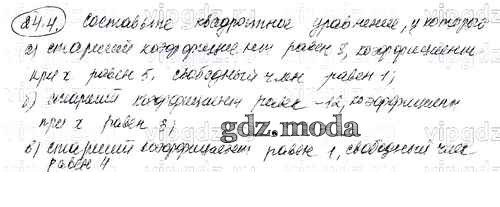 24.4. Составьте квадратное уравнение, у которого
а) старший коэффициент равен 8, коэффициент
при x равен 5, свободный член равен 1;
б) старший коэффициент равен -12, коэффициент
при x равен 3;
gdz.moda
в) старший коэффициент равен 1, свободный член
равен 4